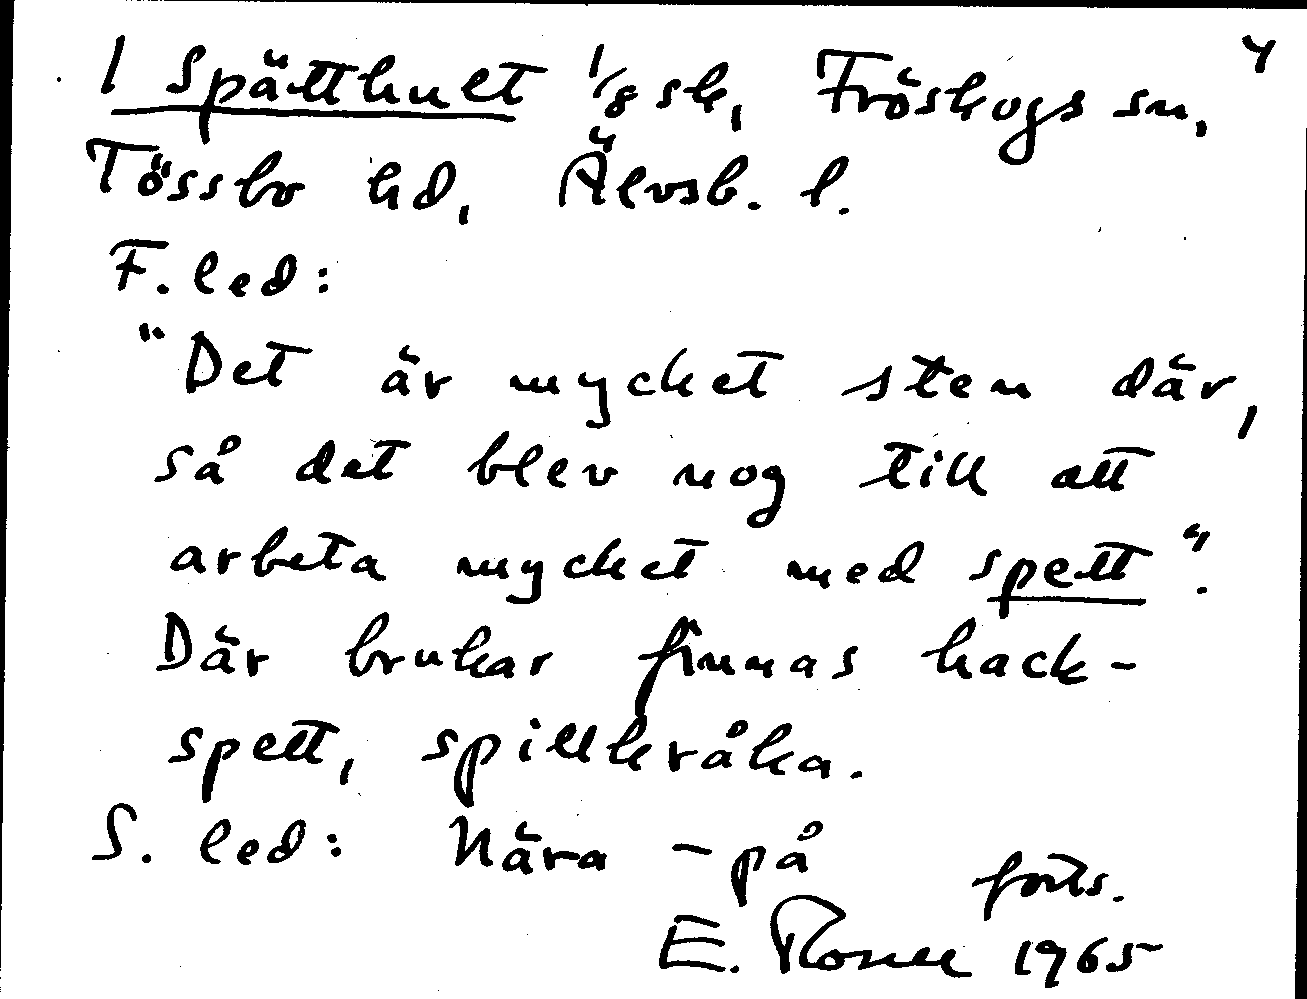 1 Spätthult 1/8 sk, Fröskogs sn, 4
Tössbo hd, Älvsb. l.
F. led:
"Det är mycket sten där,
så det blev nog till att
arbeta mycket med spett".
Där brukar finnas hack-
spett, spillkråka.
S. led: Nära - på
forts.
E. 1965